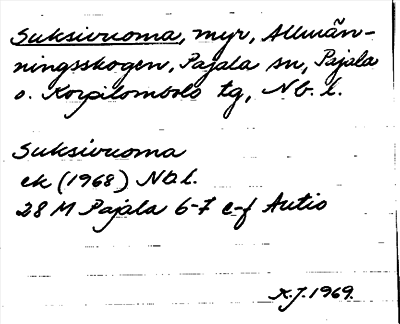 Suksivuoma, myr, Allmän-
ningsskogen, Pajala sn, Pajala
o. Korpilombolo tg, Nb. l.
Suksivuoma
ek (1968) Nb.l.
28 M Pajala 6-7 e-f Autio
K.J. 1969.